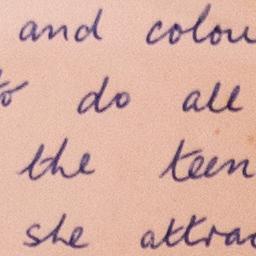 and colou
to do all
the teen
she attrac